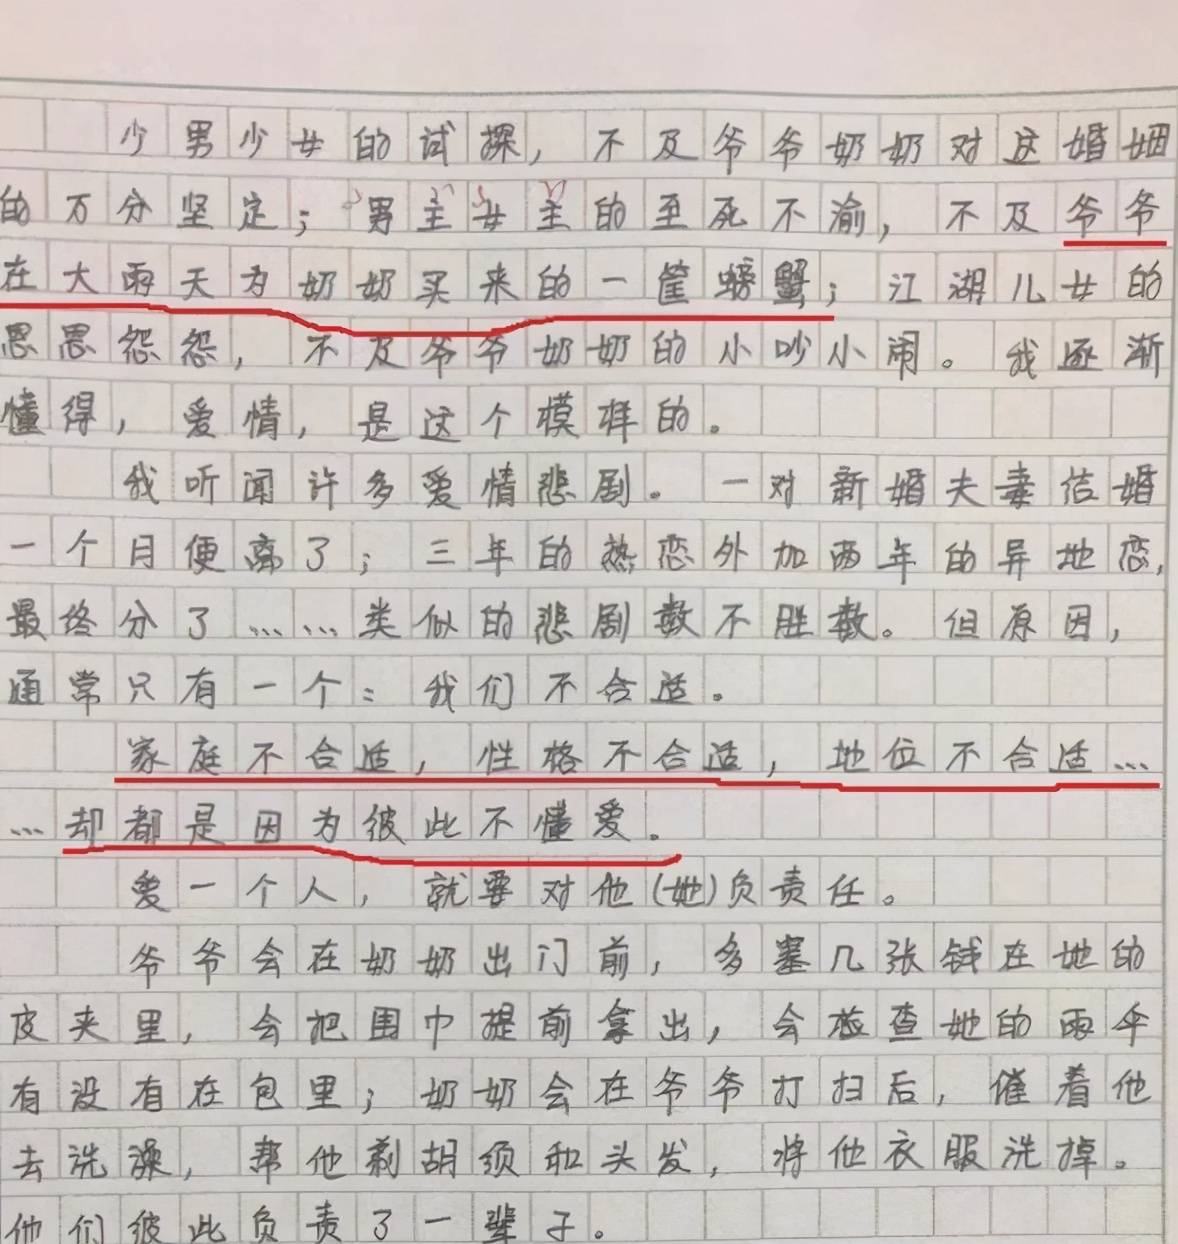 少男少女的试探，不及爷爷奶奶对这婚姻
的万分坚定；男主女主的至死不渝，不及爷爷
在大雨天为奶奶买来的一筐螃蟹；江湖儿女的
恩恩怨怨，不及爷爷奶奶的小吵小闹。我逐渐
懂得，爱情，是这个模样的。
我听闻许多爱情悲剧。一对新婚夫妻结婚
一个月便离了；三年的热恋外加两年的异地恋，
最终分了……类似的悲剧数不胜数。但原因，
通常只有一个：我们不合适。
家庭不合适，性格不合适，地位不合适…
…却都是因为彼此不懂爱。
爱一个人，就要对他(她)负责任。
爷爷会在奶奶出门前，多塞几张钱在她的
皮夹里，会把围巾提前拿出，会检查她的雨伞
有没有在包里；奶奶会在爷爷打扫后，催着他
去洗澡，帮他剃胡须和头发，将他衣服洗掉。
他们彼此负责了一辈子。